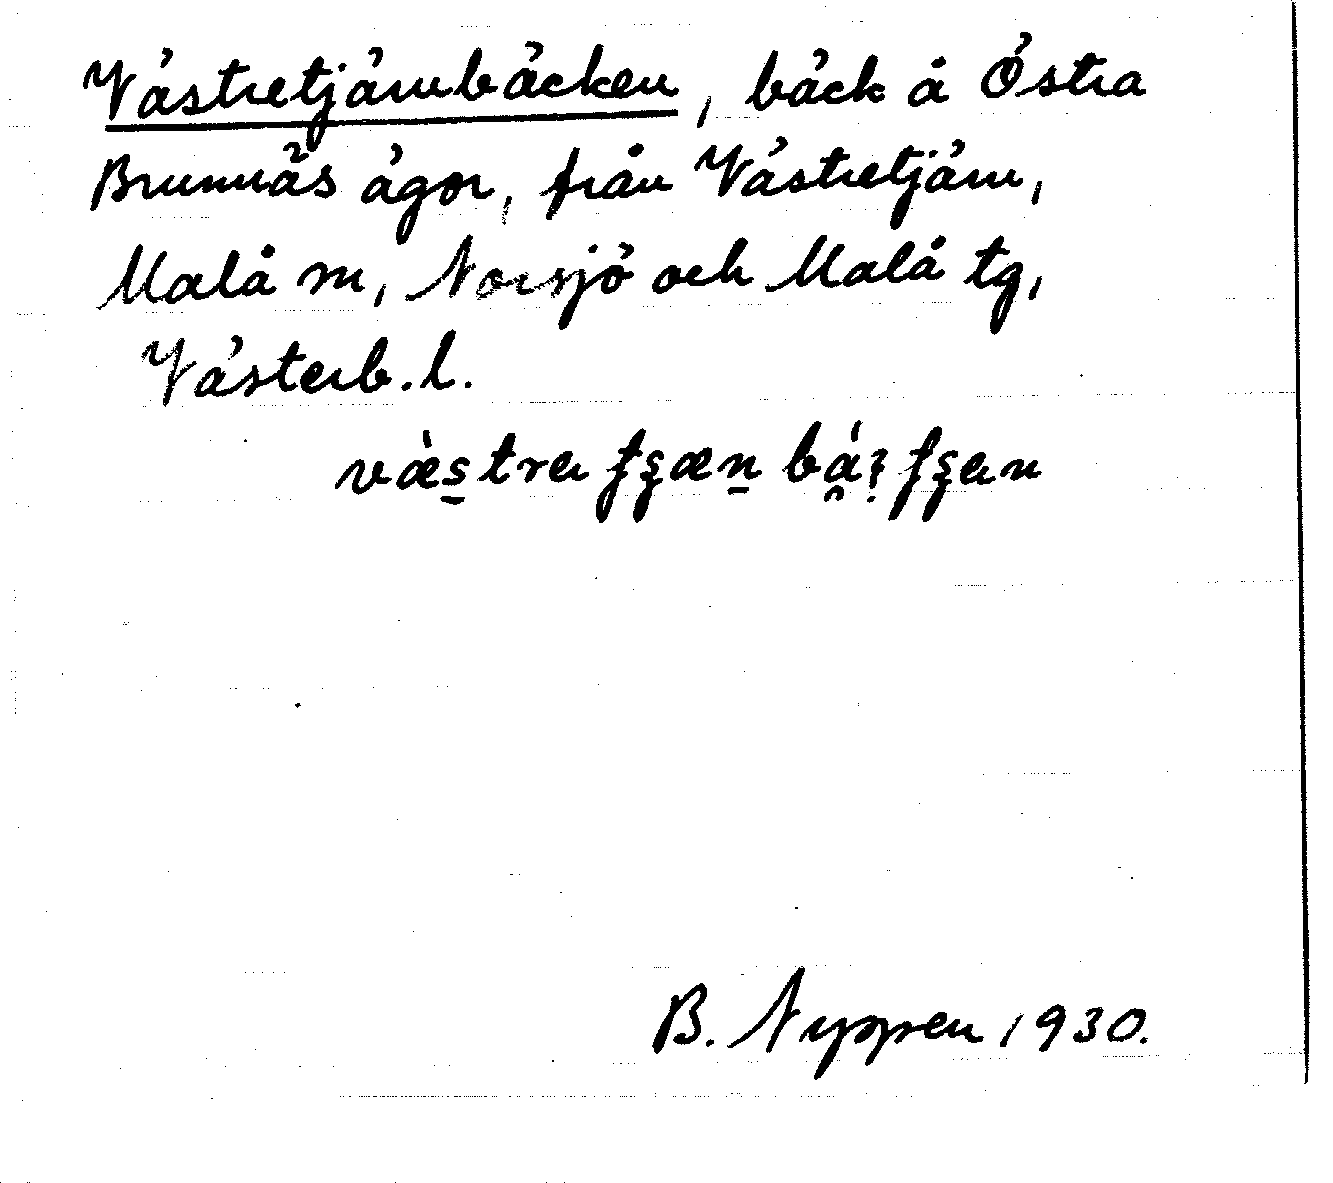 Västretjärnbäcken, bäck å Östra
Brunnäs ägor, från Västretjärn,
Malå sn, Norsjö och Malå tg,
Västerb. l.
B. Nyppen 1930.